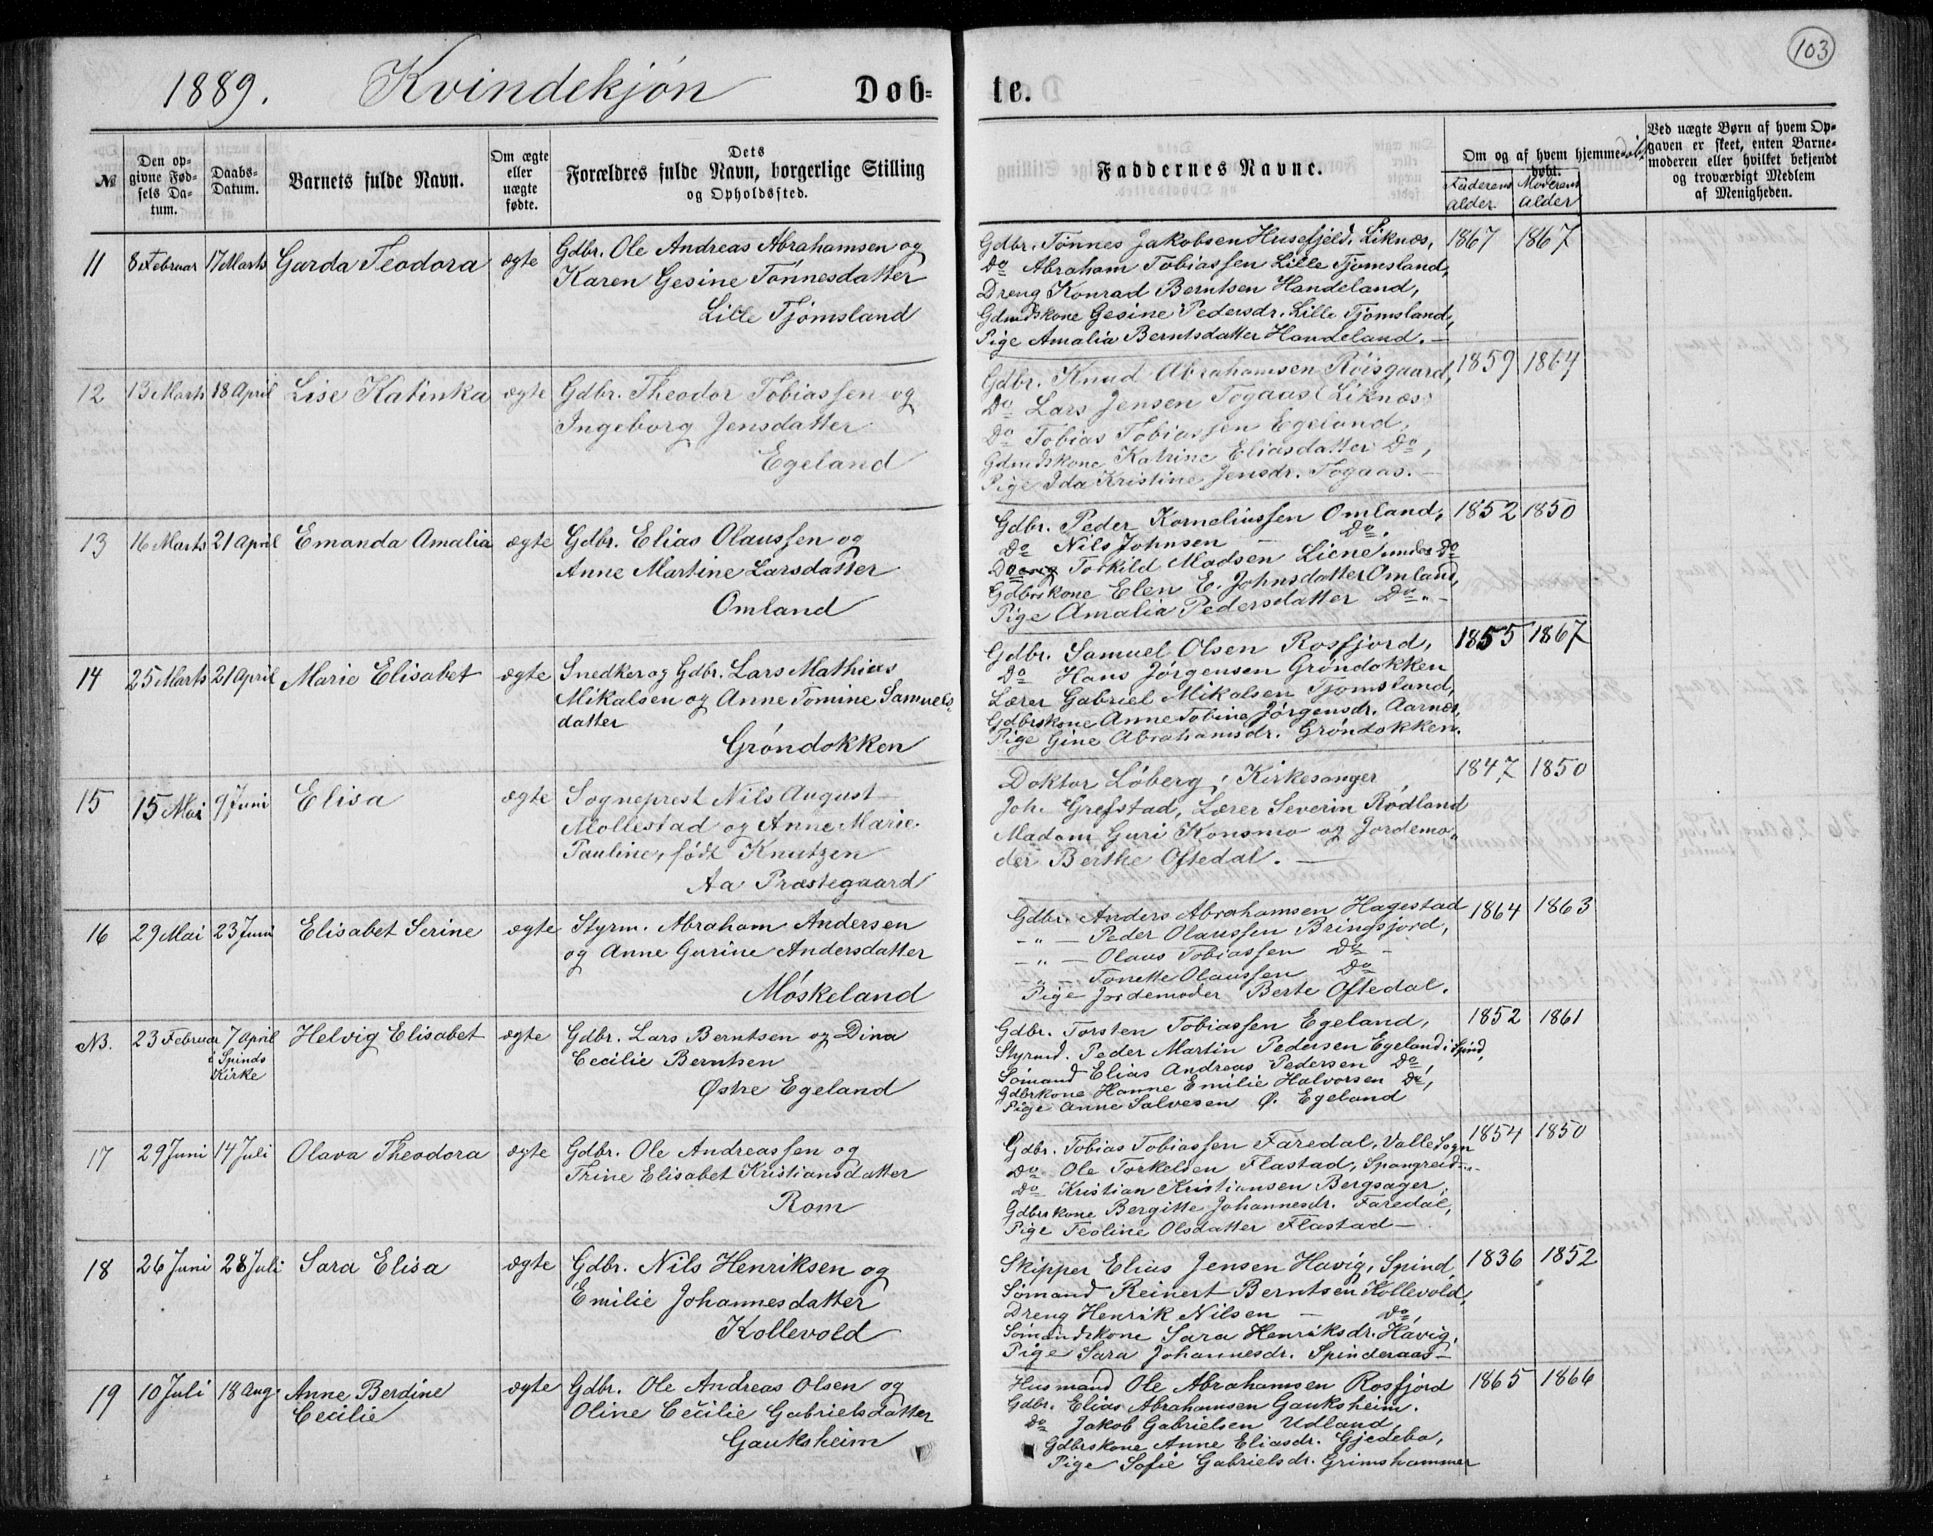 1889. Kvindekjøn Døb-
№
Den opgivne Fødsels Datum.
Daabs-Datum.
Barnets fulde Navn.
Om ægte eller uægte fødte.
Dets Forældres fulde Navn, borgerlige Stilling og Opholdssted.
11 8 Februar 17 Marts Garda Teodora ægte Gdbr. Ole Andreas Abrahamsen og
Karen Gesine Tønnesdatter
Lille Tjømsland
12 13 Marts 18 April Lise Katinka ægte Gdbr. Theodor Tobiassen og
Ingeborg Jensdatter
Egeland
13 16 Marts 21 April Emanda Amalia ægte Gdbr. Elias Olaussen og
Anne Martine Larsdatter
Omland
14 25 Marts 21 April Marie Elisabet ægte Snedker og Gdbr. Lars Mathias
Mikalsen og Anne Tomine Samuels-
datter
Grøndokken
15 15 Mai 9 Juni Elisa ægte Sogneprest Nils August
Mollestad og Anne Marie
Pauline, født Knutzen
Aa Præstegaard
16 29 Mai 23 Juni Elisabet Serine ægte Styrm. Abraham Andersen
og Anne Gurine Andersdatter
Møskeland
NB. 23 Februar 7 April Helvig Elisabet ægte Gdbr. Lars Berntsen og Dina
i Spinds Cecilie Berntsen
Kirke Østre Egeland
17 29 Juni 14 Juli Olava Theodora ægte Gdbr. Ole Andreassen og
Trine Elisabet Kristiansdatter
Rom
18 26 Juni 28 Juli Sara Elisa ægte Gdbr. Nils Henriksen og
Emilie Johannesdatter
Kollevold
19 10 Juli 18 Aug. Anne Berdine ægte Gdbr. Ole Andreas Olsen og
Cecilie Oline Cecilie Gabrielsdatter
Gauksheim
103
te.
Faddernes Navne.
Om og af hvem hjemmedøbt.
Faderens alder
Moderens alder
Ved uægte Børn af hvem Opgaven er skeet, enten Barnemoderen eller hvilket bekjendt og troværdigt Medlem af Menigheden.
Gdbr. Tønnes Jakobsen Husefjeld, Liknæs, 1867 1867
Do Abraham Tobiassen Lille Tjomsland,
Dreng Konrad Berntsen Handeland,
Gdmdskone Gesine Pedersdr. Lille Tjomsland,
Pige Amalia Berntsdatter Handeland. —
Gdbr. Knud Abrahamsen Röisgaard, 1859 1864
Do Lars Jensen Togaas (Liknæs)
Do Tobias Tobiassen Egeland,
Gdmdskone Katrine Eliasdatter Do,
Pige Ida Kristine Jensdr. Togaas. —
Gdbr. Peder Korneliussen Omland, 1852 1850
Do Nils Johnsen — Do,
Torkild Madsen Liene under Do
Gdbrskone Elen E. Johnsdatter Omland,
Pige Amalia Pedersdatter Do. —
Gdbr. Samuel Olsen Rosfjord, 1855 1867
Do Hans Jørgensen Grøndokken
Lærer Gabriel Mikalsen Tjomsland,
Gdbrskone Anne Tobine Jørgensdr. Aarnes,
Pige Gine Abrahamsdr. Grøndokken.
Doktor Löberg, Kirkesanger 1847 1850
Joh. Grefstad, Lærer Severin Rødland
Madam Guri Konsmo og Jordemo-
der Berthe Oftedal. —
Gdbr. Anders Abrahamsen Hagestad 1864 1863
— " — Peder Olaussen Bringsjord,
— " — Olaus Tobiassen Do —
— " — Tonette Olaussen Do
Pige Jordemoder Berte Oftedal.
Gdbr. Torsten Tobiassen Egeland, 1852 1861
Styrmd. Peder Martin Pedersen Egeland i Spind,
Sømand Elias Andreas Pedersen Do,
Gdbrkone Hanne Emilie Halvorsen Do,
Pige Anne Salvesen Ø. Egeland
Gdbr. Tobias Tobiassen Faredal, Valle Sogn 1854 1850
Do Ole Torkelsen Flastad, Spangreid
Do Kristian Kristiansen Bergsager,
Gdbrskone Bergitte Johannesdr. Faredal,
Pige Teoline Olsdatter Flastad —
Skipper Elias Jensen Havig, Spind, 1836 1852
Sømand Reinert Berntsen Kollevold,
Dreng Henrik Nilsen — Do,
Sömandskone Sara Henriksdr. Havig,
Pige Sara Johannesdr. Spinderaas —
Husmand Ole Abrahamsen Rosfjord 1865 1866
Gdbr. Elias Abrahamsen Gauksheim.
Do Jakob Gabrielsen Udland,
Gdbrskone Anne Eliasdr. Gjedebo,
Pige Sofie Gabrielsdr. Grimshammer